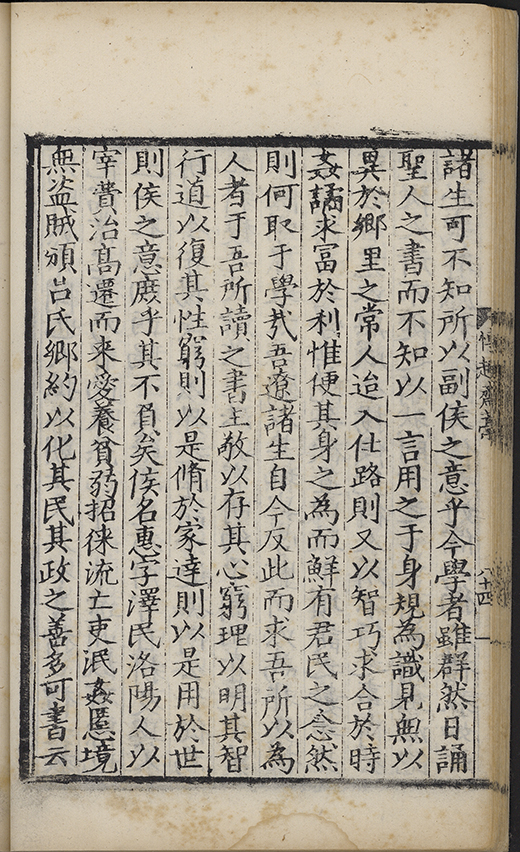 諸生可不知所以副侯之意乎今學者雖群然日誦
聖人之書而不知以一言用之于身規為識見無以
異於鄉里之常人迨入仕路則又以智巧求合於時
姦譎求富於利惟便其身之為而鮮有君民之念然
則何取于學㢤吾遼諸生自今反此而求吾所以為
人者于吾所讀之書主敬以存其心窮理以明其智
行道以復其性窮則以是脩於家達則以是用於世
則侯之意庶乎其不負矣侯名惠字澤民洛陽人以
宰費治高遷而来愛養貧弱招徠流亡吏泯姦慝境
無盜賊頒吕氏鄉約以化其民其政之善多可書云
八十四